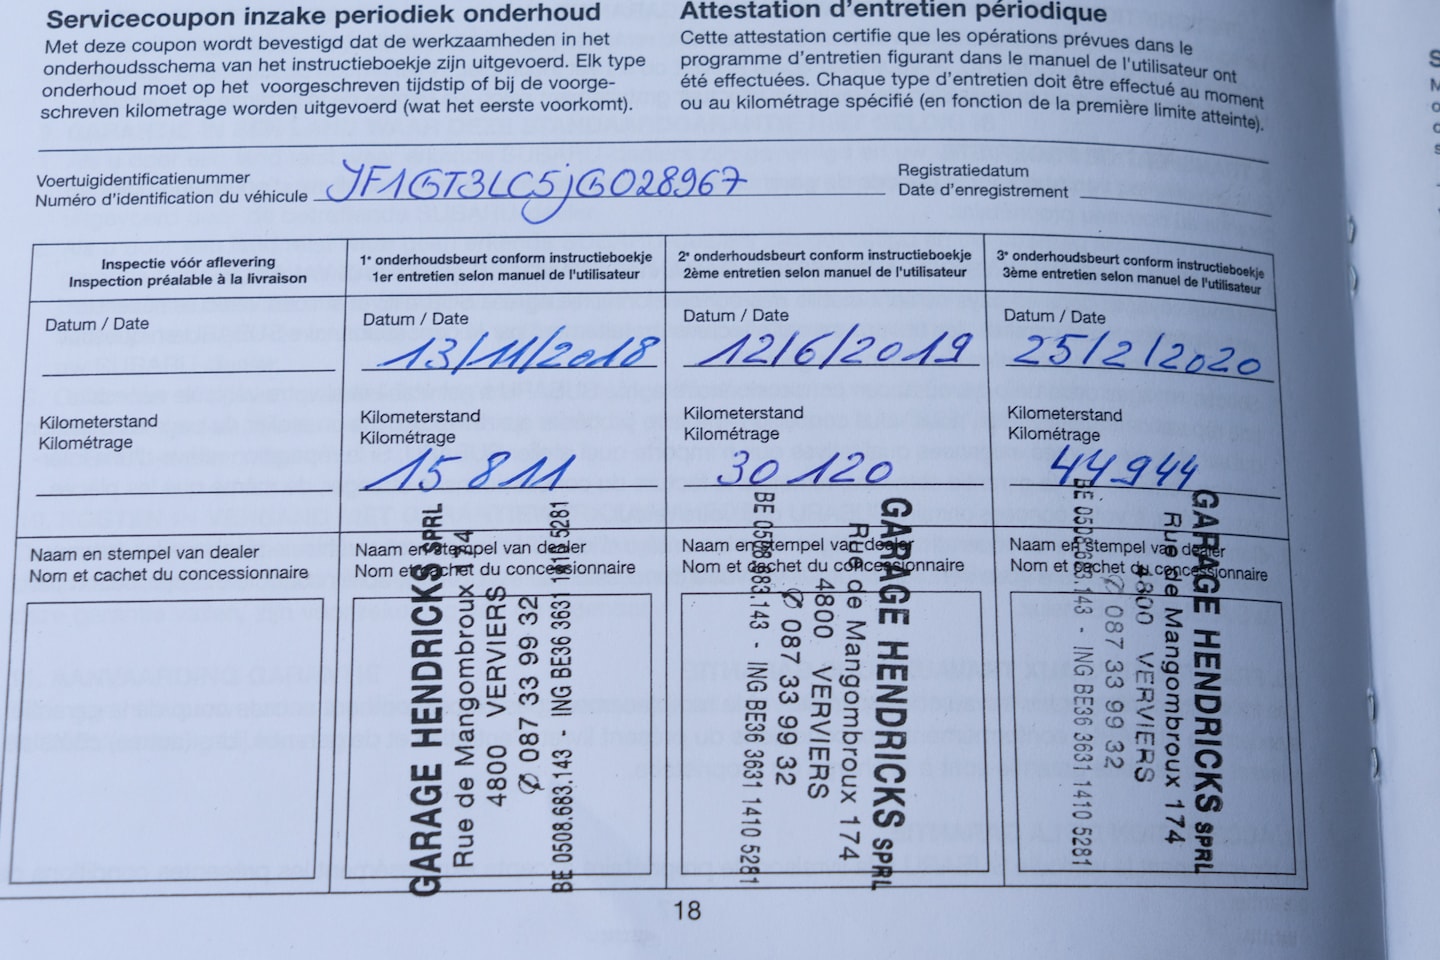 Servicecoupon inzake periodiek onderhoud
Met deze coupon wordt bevestigd dat de werkzaamheden in het
onderhoudsschema van het instructieboekje zijn uitgevoerd. Elk type
onderhoud moet op het voorgeschreven tijdstip of bij de voorge-
schreven kilometrage worden uitgevoerd (wat het eerste voorkomt).
Attestation d'entretien périodique
Cette attestation certifie que les opérations prévues dans le
programme d'entretien figurant dans le manuel de l'utilisateur ont
été effectuées. Chaque type d'entretien doit être effectué au moment
ou au kilométrage spécifié (en fonction de la première limite atteinte).
Voertuigidentificatienummer
Numéro d'identification du véhicule
JF1GT3LC5JG028967
Registratiedatum
Date d'enregistrement
Inspectie vóór aflevering
Inspection préalable à la livraison
Datum / Date
Kilometerstand
Kilométrage
Naam en stempel van dealer
Nom et cachet du concessionnaire
1e onderhoudsbeurt conform instructieboekje
1er entretien selon manuel de l'utilisateur
Datum / Date
13/11/2018
Kilometerstand
Kilométrage
15 811
Naam en stempel van dealer
Nom et cachet du concessionnaire
GARAGE HENDRICKS SPRL
Rue de Mangombroux 174
4800 VERVIERS
✆ 087 33 99 32
BE 0508.683.143 - ING BE36 3631 1410 5281
2e onderhoudsbeurt conform instructieboekje
2ème entretien selon manuel de l'utilisateur
Datum / Date
12/6/2019
Kilometerstand
Kilométrage
30 120
Naam en stempel van dealer
Nom et cachet du concessionnaire
GARAGE HENDRICKS SPRL
Rue de Mangombroux 174
4800 VERVIERS
✆ 087 33 99 32
BE 0508.683.143 - ING BE36 3631 1410 5281
3e onderhoudsbeurt conform instructieboekje
3ème entretien selon manuel de l'utilisateur
Datum / Date
25/2/2020
Kilometerstand
Kilométrage
44944
Naam en stempel van dealer
Nom et cachet du concessionnaire
GARAGE HENDRICKS SPRL
Rue de Mangombroux 174
4800 VERVIERS
✆ 087 33 99 32
BE 0508.683.143 - ING BE36 3631 1410 5281
18